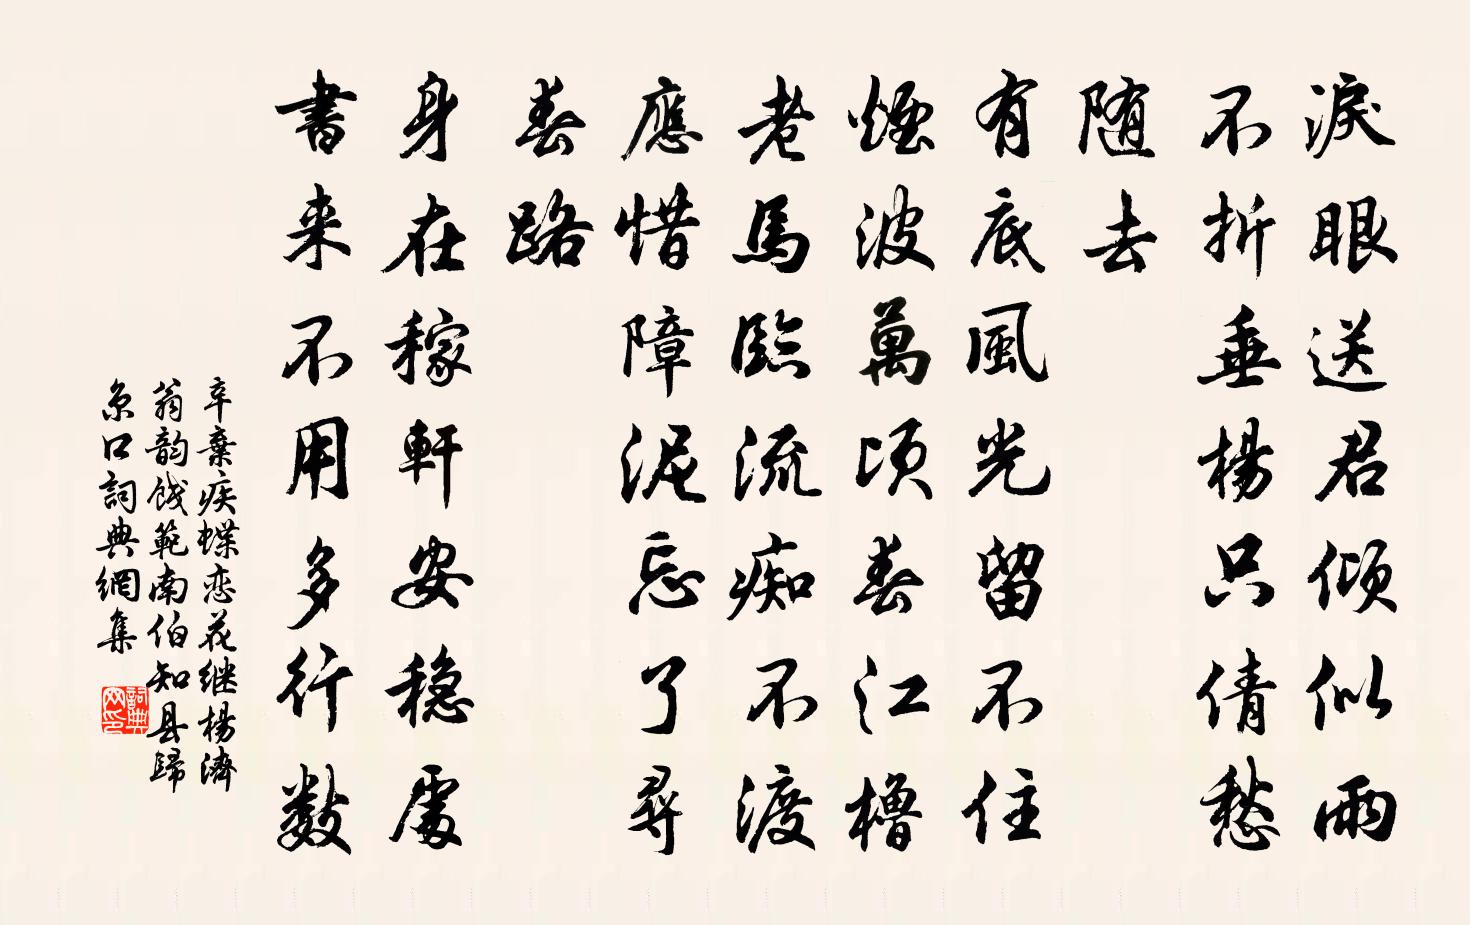 淚眼送君傾似雨
不折垂楊只倩愁
随去
有底風光留不住
煙波萬頃春江櫓
老馬臨流痴不渡
應惜障泥忘了尋
春路
身在稼軒安穏處
書来不用多行數
辛棄疾蝶恋花继楊濟
翁韵餞範南伯知县歸
京口詞典網集
詞典网印